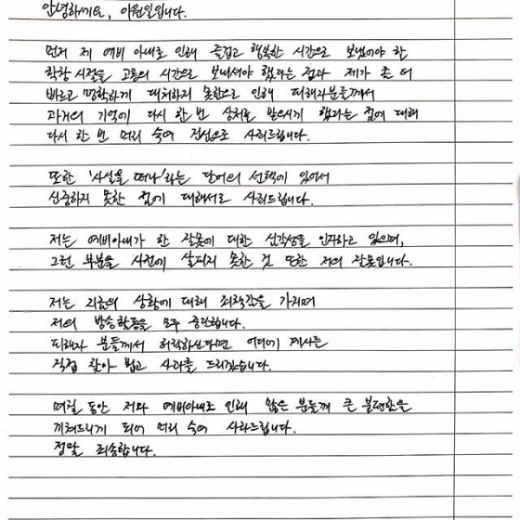 안녕하세요, 이원일입니다.
먼저 제 예비 아내로 인해 즐겁고 행복한 시간으로 보냈어야 할
학창 시절을 고통의 시간으로 보내셔야 했다는 점과 제가 좀 더
빠르고 명확하게 대처하지 못함으로 인해 피해자분들께서
과거의 기억에 다시 한 번 상처를 받으시게 했다는 점에 대해
다시 한 번 머리 숙여 진심으로 사죄드립니다.
또한 '사실을 떠나'라는 단어의 선택에 있어서
신중하지 못한 점에 대해서도 사죄드립니다.
저는 예비아내가 한 잘못에 대한 심각성을 인지하고 있으며,
그런 부분을 사전에 살피지 못한 것 또한 저의 잘못입니다.
저는 지금의 상황에 대해 죄책감을 가지며
저의 방송활동을 모두 중단합니다.
피해자 분들께서 허락하신다면 어디에 계시든
직접 찾아 뵙고 사과를 드리겠습니다.
며칠 동안 저와 예비아내로 인해 많은 분들께 큰 불편함을
끼쳐드리게 되어 머리 숙여 사과드립니다.
정말 죄송합니다.